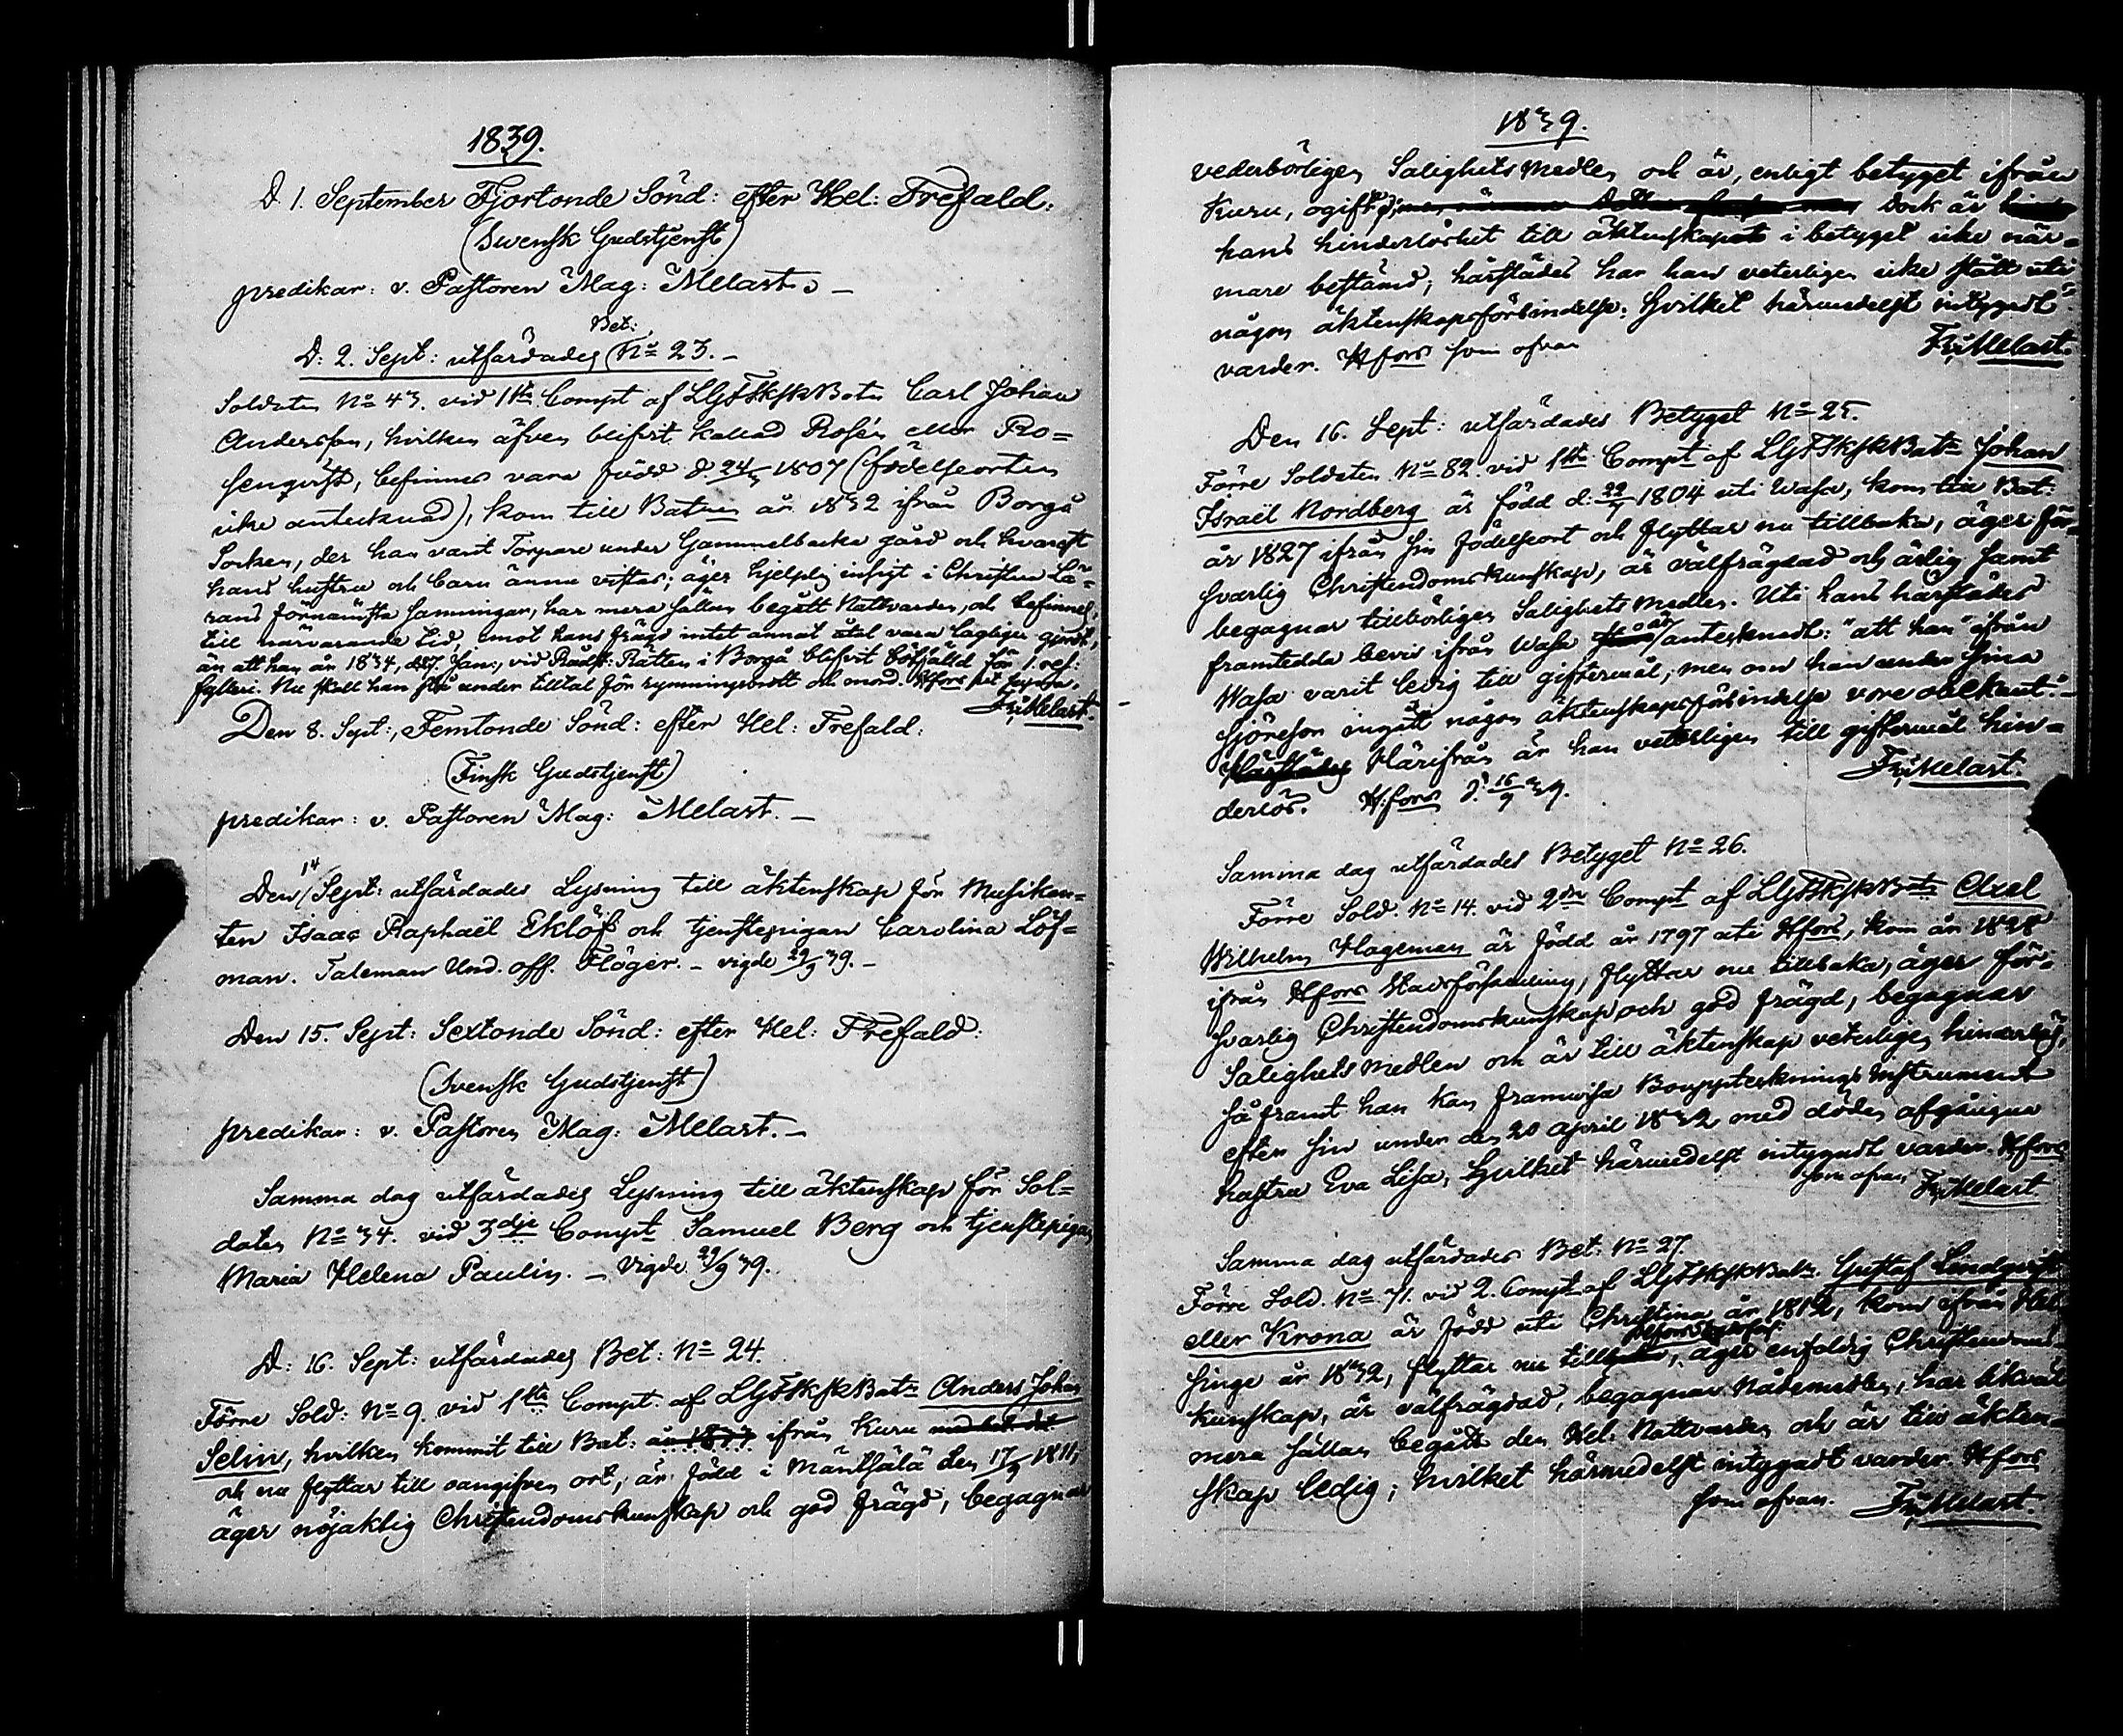 1839.
D. 1. September Fjortonde Sönd: efter Hel: Trefald:
(Swensk Gudstjenst)
predikar: v. Pastoren Mag: Melart. –
Bet:
D: 2. Sept: utfärdades No 23. –
Soldaten No 43. vid 1sta Compt af LGFSkskBatn Carl Johan
Andersson, hvilken äfven blifvit kallad Rosén eller Ro=
senqvist, befinnes vara född d. 24/ 1807 (födelseorten
icke antecknad), kom till Batnen år 1832 ifrån Borgå
Socken, der han varit Torpare under Gammelbacka gård och hvarest
hans hustru och barn ännu vistas; äger hjelplig insigt i Christna Lä=
rans förnämsta sanningar, har mera sällan begått Nattvarden, och befinnes,
till närvarande tid, emot hans frägd intet annat åtal vara lagligen gjordt,
än att han år 1834, d. 27. Jan:, vid Rådst: Rätten i Borgå blifvit bötfälld för 1. res:
fylleri. Nu skall han stå under tilltal för rymningsbrott och mord. Hfors
Fr: Melart.
Den 8. Sept:, Femtonde Sönd: efter Hel: Trefald:
(Finsk Gudstjenst)
predikar: v. Pastoren Mag: Melart. –
14
Den Sept: utfärdades Lysning till äktenskap för Musikan=
ten Isaac Raphaël Eklöf och tjenstepigan Carolina Löf=
man. Taleman Und. off. Flöger. – vigde 29/9 39. –
Den 15. Sept: Sextonde Sönd: efter Hel: Trefald:
(Svensk Gudstjenst)
predikar: v. Pastoren Mag: Melart. –
Samma dag utfärdades Lysning till äktenskap för Sol=
daten No 34. vid 3dje Compt Samuel Berg och tjenstepigan
Maria Helena Paulin. – Vigde 29/9 39.
D: 16. Sept: utfärdades Bet: No 24.
Förre Sold: No 9. vid 1sta Compt. af LGFSkskBatn Anders Johan
Selin, hvilken kommit till Bat: år 1833 ifrån Kuru
och nu flyttar till oangifven ort, är född i Mäntsälä den 17/9 1811,
äger nöjaktig Christendomskunskap och god frägd, begagnar
1839.
vederbörligen Salighetsmedlen och är, enligt betyget ifrån
Kuru, ogift; Dock är
hans hinderlöshet till äktenskap i betyget icke när=
mare bestämd; härstädes har han veterligen icke stått uti
någon äktenskapsförbindelse: Hvilket härmedelst intygadt
varder. Hfors som ofvan
Fr: Melart.
Den 16. Sept: utfärdades Betyget No 25.
Förre Soldaten No 82. vid 1sta Compt af LGFSkskBatn Johan
Israël Nordberg är född d. 22/ 1804 uti Wasa, kom till Bat:
år 1827 ifrån sin födelseort och flyttar nu tillbaka, äger för=
svarlig Christendomskunskap, är välfrägdad och ärlig samt
begagnar tillbörligen Salighetsmedlen. Uti hans härstädes
framtedda bevis ifrån Wasa är antecknadt: "att han" ifrån
Wasa varit ledig till giftermål; men om han under sina
sjöresor ingått någon äktenskapsförbindelse vore obekant" –
Härstädes Härifrån är han veterligen till giftermål hin=
derlös. Hfors d. 16/9 39.
Fr: Melart.
Samma dag utfärdades Betyget No 26.
Förre Sold. No 14. vid 2dra Compt af LGFSkskBatn Axel
Wilhelm Hageman är född år 1797 uti Hfors, kom år 1828
ifrån Hfors Stadsförsamling, flyttar nu tillbaka, äger för=
svarlig Christendomskunskap och god frägd, begagnar
Salighetsmedlen och är till äktenskap veterligen hinderlös,
såframt han kan framvisa Bouppteckningsinstrument
efter sin under den 20 april 1832 med döden afgångna
hustru Eva Lisa, Hvilket härmedelst intygadt varder. Hfors
som ofvan, Fr: Melart.
Samma dag utfärdades Bet: No 27.
Förre Sold. No 71. vid 2. Compt af LGFSkskBatn. Gustaf Lindqvist
eller Krona är född uti Christina år 1812, kom ifrån Hel=
singe år 1832, flyttar nu till, äger enfaldig Christendoms=
kunskap, är välfrägdad, begagnar Nådemedlen, har likväl
mera sällan begått den Hel: Nattvarden och är till äkten=
skap ledig; hvilket härmedelst intygadt varder. Hfors
som ofvan. Fr: Melart.